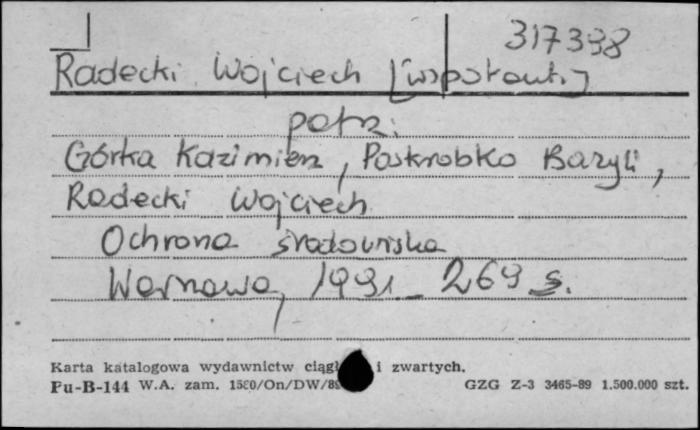 317398
Radecki Wojciech [współaut.]
patrz:
Górka Kazimierz, Poskrobko Bazyli,
Radecki Wojciech
Ochrona środowiska
Warszawa, 1991 269 s.
Karta katalogowa wydawnictw ciągł i zwartych.
Pu-B-144 W.A. zam. 1580/On/DW/89 GZG Z-3 3465-89 1.500.000 szt.